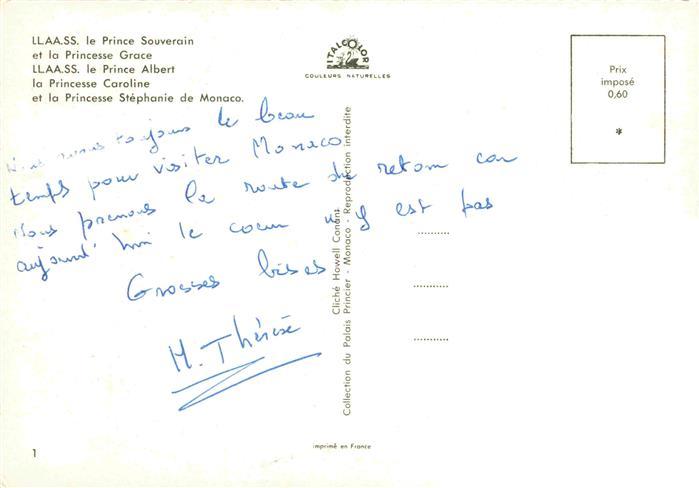 LL.AA.SS. le Prince Souverain
et la Princesse Grace
LL.AA.SS. le Prince Albert
la Princesse Caroline
et la Princesse Stéphanie de Monaco.
ITALCOLOR
COULEURS NATURELLES
Prix
imposé
0,60
*
Nous avons toujours le beau
temps pour visiter Monaco
Nous prenons la route du retour car
aujourd'hui le coeur n'y est pas
Grosses bises
M. Thérèse
Cliché Howell Conant
Collection du Palais Princier - Monaco - Reproduction interdite
imprimé en France
1